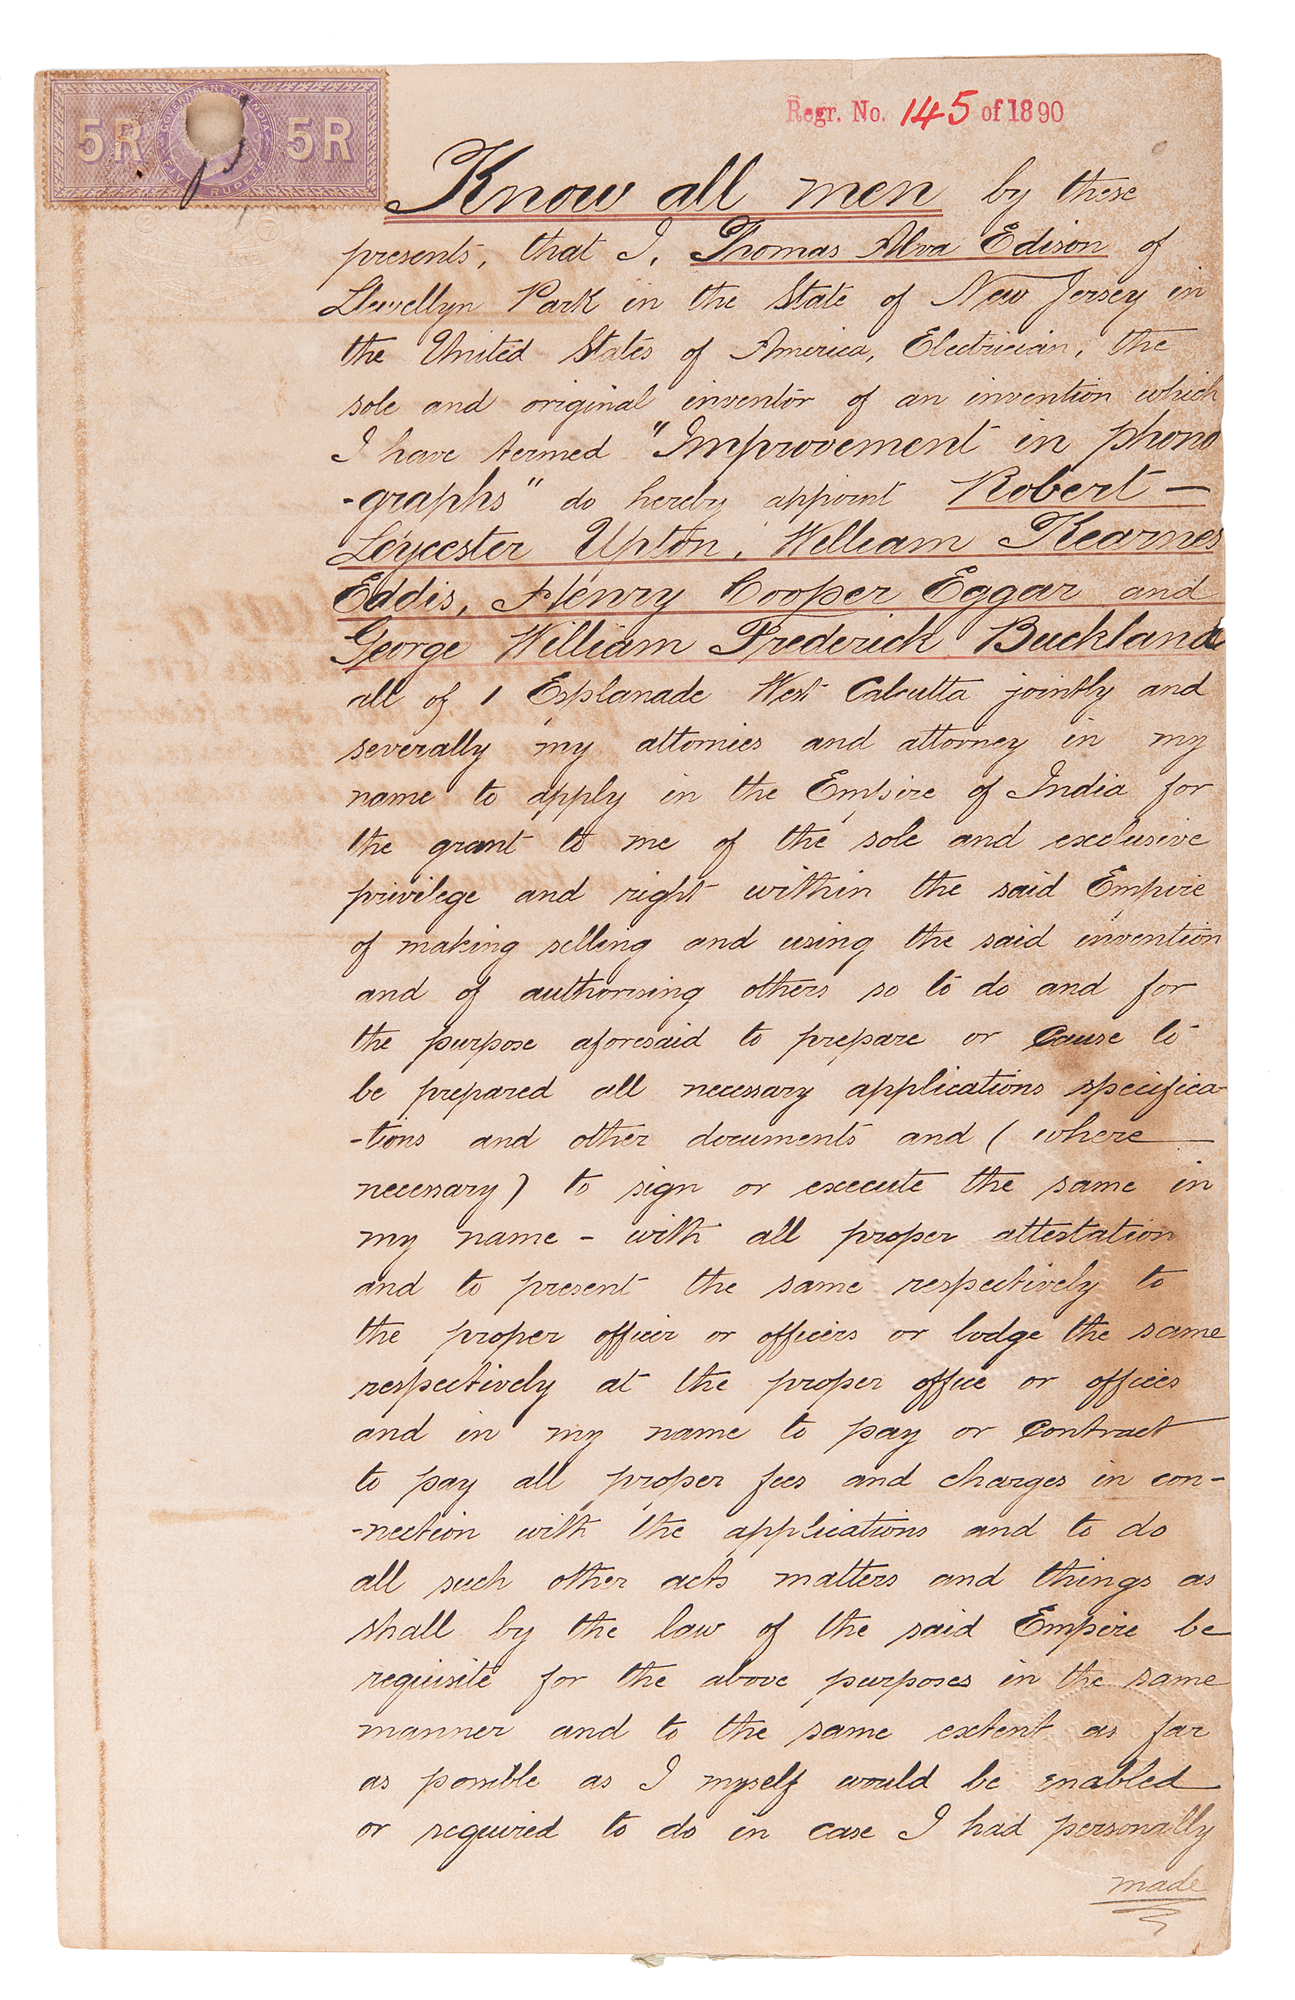 5R GOVERNMENT OF INDIA 5R
RUPEES
Regr. No. 145 of 1890
Know all men by these
presents, that I, Thomas Alva Edison of
Llewellyn Park in the State of New Jersey in
the United States of America, Electrician, the
sole and original inventor of an invention which
I have termed "Improvement in phono
-graphs" do hereby appoint Robert —
Leycester Upton, William Kearnes
Eddis, Henry Cooper Eggar and
George William Frederick Buckland
all of 1 Esplanade West Calcutta jointly and
severally my attornies and attorney in my
name to apply in the Empire of India for
the grant to me of the sole and exclusive
privilege and right within the said Empire
of making selling and using the said invention
and of authorising others so to do and for
the purpose aforesaid to prepare or cause to
be prepared all necessary applications specifica
-tions and other documents and (where
necessary) to sign or execute the same in
my name - with all proper attestation
and to present the same respectively to
the proper officer or officers or lodge the same
respectively at the proper office or offices
and in my name to pay or contract
to pay all proper fees and charges in con-
-nection with the applications and to do
all such other acts matters and things as
shall by the law of the said Empire be
requisite for the above purposes in the same
manner and to the same extent as far
as possible as I myself would be enabled
or required to do in case I had personally
made